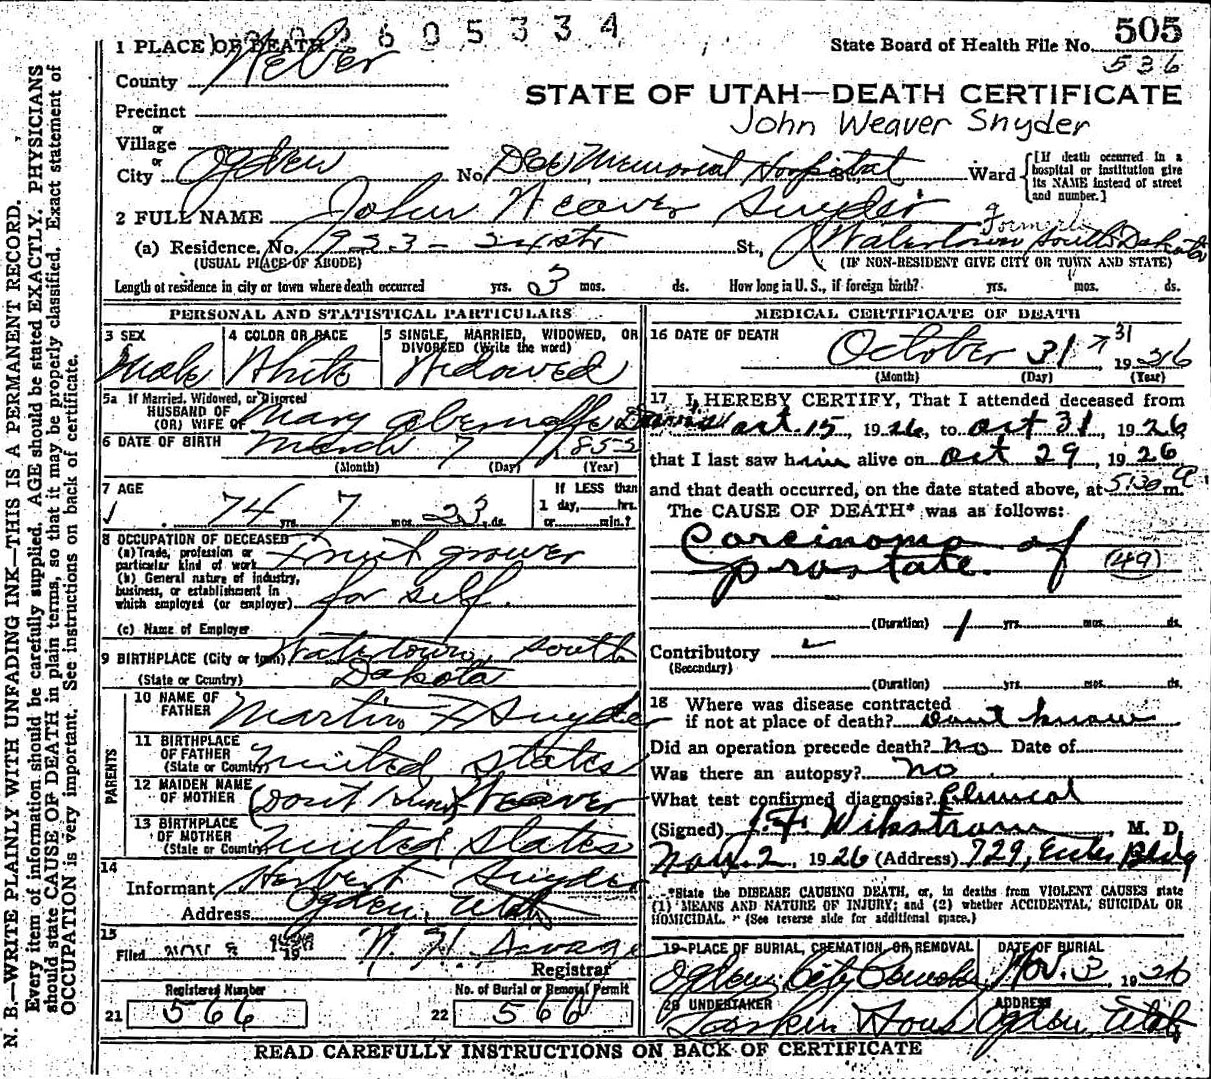 605334
505
1 PLACE OF DEATH
State Board of Health File No.
536
County Weber
STATE OF UTAH—DEATH CERTIFICATE
Precinct
John Weaver Snyder
or
Village
or
City Ogden No. Dee Memorial Hospital St., Ward
[If death occurred in a hospital or institution give its NAME instead of street and number.]
2 FULL NAME John Weaver Snyder
Formerly
(a) Residence, No. St., Watertown South Dakota
(USUAL PLACE OF ABODE) (IF NON-RESIDENT GIVE CITY OR TOWN AND STATE)
Length of residence in city or town where death occurred yrs. 3 mos. ds. How long in U. S., if foreign birth? yrs. mos. ds.
PERSONAL AND STATISTICAL PARTICULARS
3 SEX Male
4 COLOR OR RACE White
5 SINGLE, MARRIED, WIDOWED, OR DIVORCED (Write the word) Widowed
5a If Married, Widowed, or Divorced
HUSBAND OF
(OR) WIFE OF Mary
6 DATE OF BIRTH March 7 1852
(Month) (Day) (Year)
7 AGE 74 yrs. 7 mos. 23 ds.
If LESS than
1 day, hrs.
or min.?
8 OCCUPATION OF DECEASED
(a) Trade, profession or
particular kind of work Fruit grower
(b) General nature of industry,
business, or establishment in
which employed (or employer) for self.
(c) Name of Employer
9 BIRTHPLACE (City or town) Watertown, South
(State or Country) Dakota
PARENTS
10 NAME OF
FATHER Martin F Snyder
11 BIRTHPLACE
OF FATHER
(State or Country) United States
12 MAIDEN NAME
OF MOTHER (Dont Know) Weaver
13 BIRTHPLACE
OF MOTHER
(State or Country) United States
14
Informant Herbert Snyder
Address Ogden, Utah
15
Filed NOV 19 Registrar
Registered Number
21 566
No. of Burial or Removal Permit
22 566
MEDICAL CERTIFICATE OF DEATH
16 DATE OF DEATH
October 31 31 1926
(Month) (Day) (Year)
17 I HEREBY CERTIFY, That I attended deceased from
Oct 15, 1926, to Oct 31, 1926
that I last saw him alive on Oct 29, 1926
and that death occurred, on the date stated above, at 5:30 a m.
The CAUSE OF DEATH* was as follows:
Carcinoma of
prostate. (49)
(Duration) 1 yrs. mos. ds.
Contributory
(Secondary)
(Duration) yrs. mos. ds.
18 Where was disease contracted
if not at place of death? Dont know
Did an operation precede death? No Date of
Was there an autopsy? No
What test confirmed diagnosis? Clinical
(Signed) J. F. Wikstrom, M. D.
Nov. 2, 1926 (Address) 729, Eccles Bldg
*State the DISEASE CAUSING DEATH, or, in deaths from VIOLENT CAUSES state
(1) MEANS AND NATURE OF INJURY; and (2) whether ACCIDENTAL, SUICIDAL OR
HOMICIDAL. (See reverse side for additional space.)
19 PLACE OF BURIAL, CREMATION, OR REMOVAL Ogden City
DATE OF BURIAL Nov. 3 1926
20 UNDERTAKER Larkin Sons
ADDRESS Ogden, Utah
READ CAREFULLY INSTRUCTIONS ON BACK OF CERTIFICATE
N. B.—WRITE PLAINLY WITH UNFADING INK—THIS IS A PERMANENT RECORD.
Every item of information should be carefully supplied. AGE should be stated EXACTLY. PHYSICIANS
should state CAUSE OF DEATH in plain terms, so that it may be properly classified. Exact statement of
OCCUPATION is very important. See instructions on back of certificate.